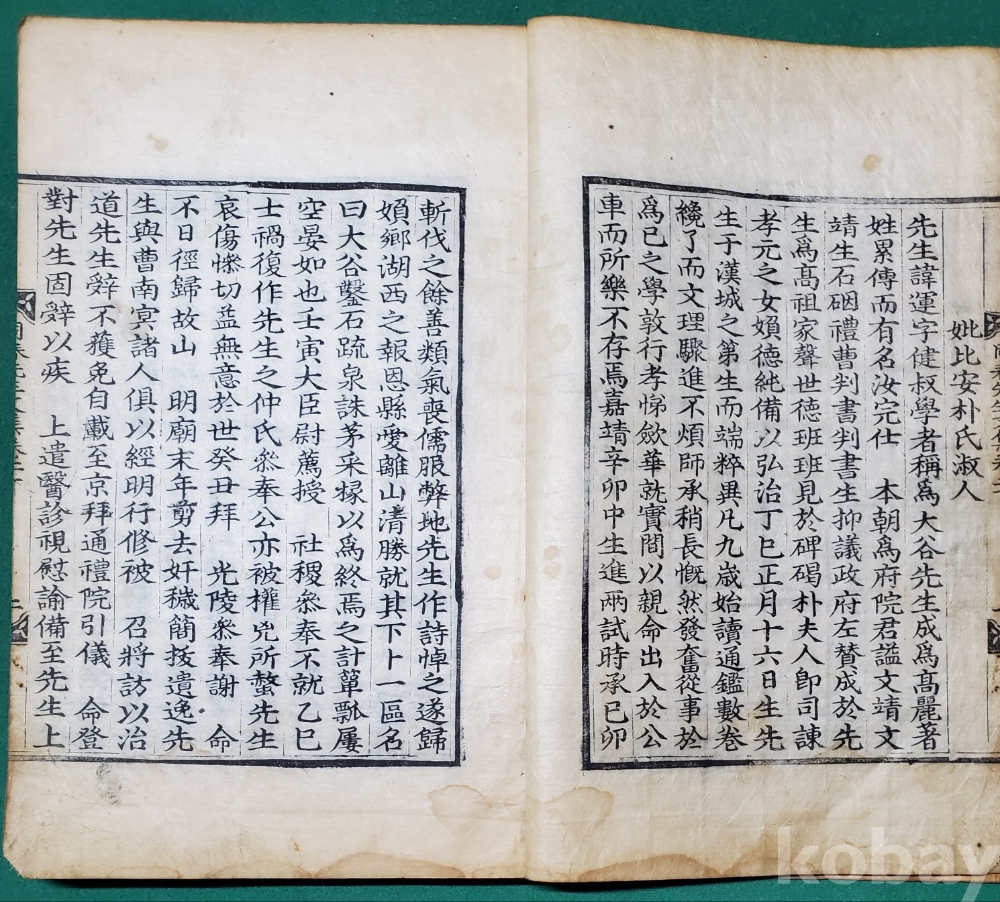 妣比安朴氏淑人
先生諱運字健叔學者稱爲大谷先生成爲高麗著
姓累傳而有名汝完仕 本朝爲府院君謚文靖文
靖生石硱禮曹判書判書生抑議政府左賛成於先
生爲高祖家聲世德班班見於碑碣朴夫人卽司諫
孝元之女嫺德純備以弘治丁巳正月十六日生先
生于漢城之第生而端粹異凡九歲始讀通鑑數卷
纔了而文理驟進不煩師承稍長慨然發奮從事於
爲己之學敦行孝悌斂華就實間以親命出入於公
車而所樂不存焉嘉靖辛卯中生進兩試時承己卯
斬伐之餘善類氣喪儒服弊地先生作詩悼之遂歸
嬪鄉湖西之報恩縣愛離山清勝就其下卜一區名
曰大谷鑿石疏泉誅茅采椽以爲終焉之計簞瓢屢
空晏如也壬寅大臣尉薦授 社稷叅奉不就乙巳
士禍復作先生之仲氏叅奉公亦被權兇所螫先生
哀傷慘切益無意於世癸丑拜 光陵叅奉謝 命
不日徑歸故山 明廟末年剪去奸穢簡拔遺逸先
生與曹南冥諸人俱以經明行修被 召將訪以治
道先生辤不獲免自載至京拜通禮院引儀 命登
對先生固辤以疾 上遣醫診視慰諭備至先生上
kobay